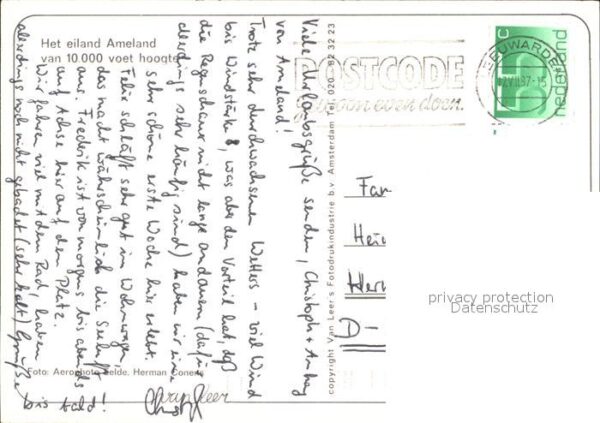 Het eiland Ameland
van 10.000 voet hoogte
Viele Urlaubsgrüße senden, Christoph +
von Ameland!
Trotz sehr durchwachsenen Wetters – viel Wind
bis Windstärke 8, was aber den Vorteil hat, daß
die Regenschauer nicht lange andauern (dafür
allerdings sehr häufig sind) haben wir eine
sehr schöne erste Woche hier erlebt.
Felix schläft sehr gut im Wohnwagen,
das macht wahrscheinlich die Seeluft
aus. Frederik ist von morgens bis abends
auf Achse hier auf dem Platz.
Wir fahren viel mit dem Rad, haben
allerdings noch nicht gebadet (sehr kalt) Grüße
bis bald!
Foto: Aerophoto Eelde. Herman Coners
copyright Van Leer's Fotodrukindustrie b.v. Amsterdam Tel. 020 - 82 32 23
POSTCODE
gewoon even doen.
LEEUWARDEN
55 c
nederland
Fam
Hein
Her
D-
privacy protection
Datenschutz